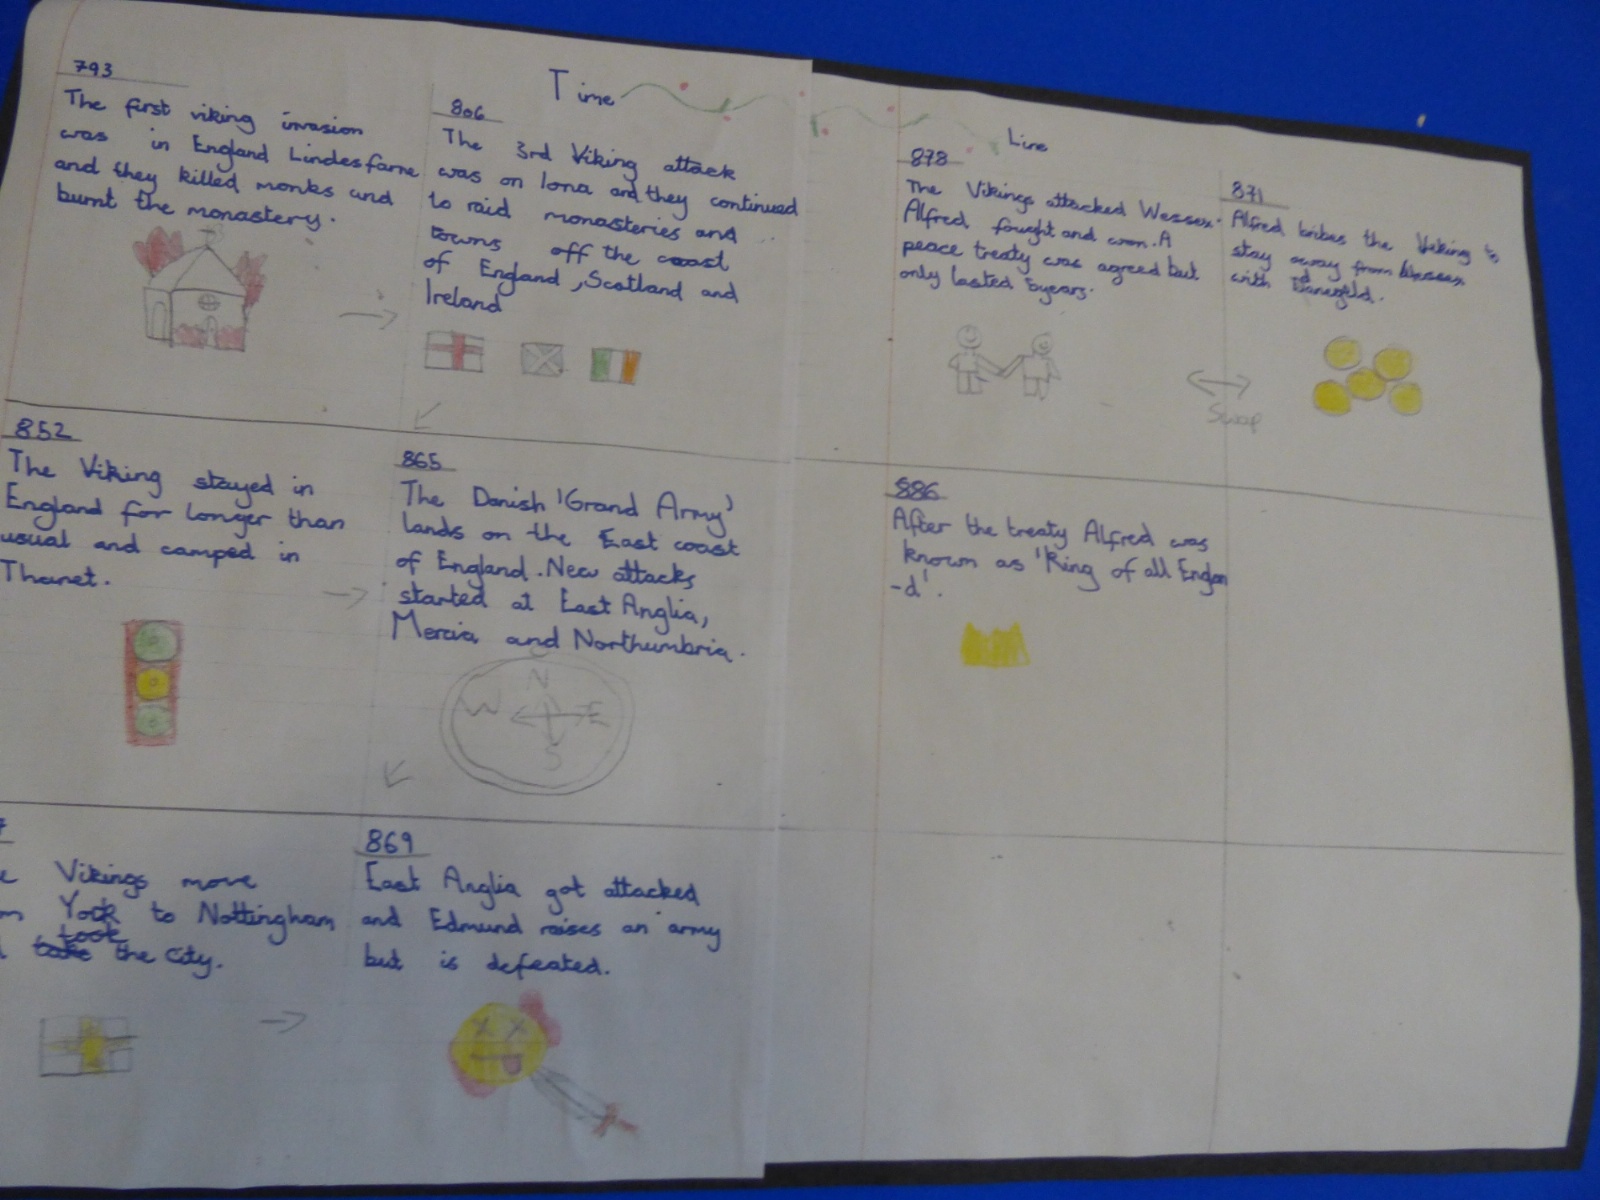 Time
Line
793
The first viking invasion
was in England Lindesfarne
and they killed monks and
burnt the monastery.
806
The 3rd Viking attack
was on Iona and they continued
to raid monasteries and
towns off the coast
of England, Scotland and
Ireland
852
The Viking stayed in
England for longer than
usual and camped in
Thanet.
865
The Danish 'Grand Army'
lands on the East coast
of England. New attacks
started at East Anglia,
Mercia and Northumbria.
N
W E
S
7
e Vikings move
m York to Nottingham
took
the city.
869
East Anglia got attacked
and Edmund raises an army
but is defeated.
878
The Vikings attacked Wessex.
Alfred fought and won. A
peace treaty was agreed but
only lasted 5years.
871
Alfred bribes the Viking to
stay away from Wessex
with
Swap
886
After the treaty Alfred was
known as 'King of all Englan
-d'.